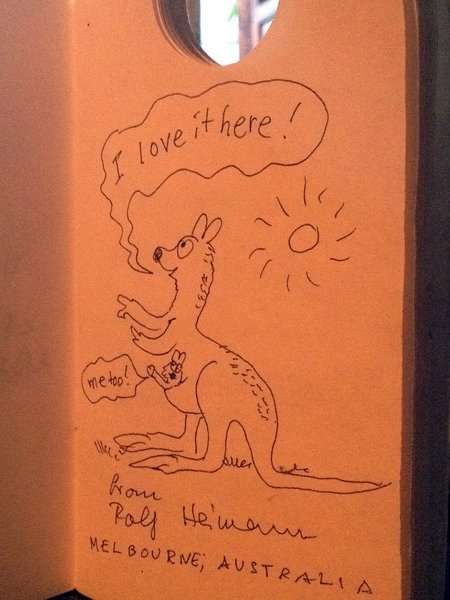 I love it here!
me too!
from
Rolf Heimann
MELBOURNE, AUSTRALIA